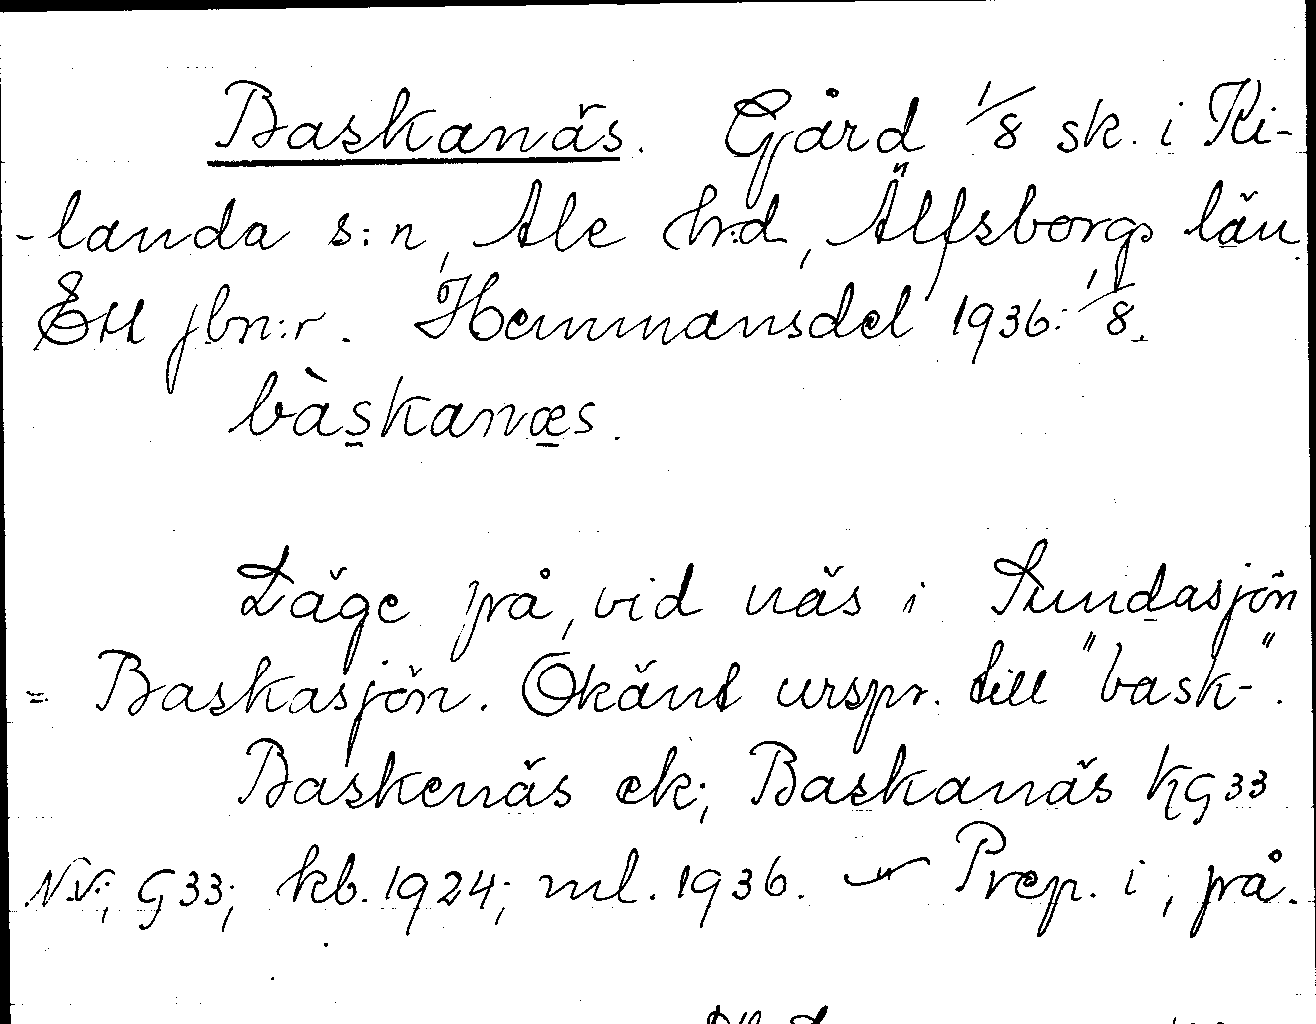 Baskanäs. Gård 1/8 sk. i Ki-
-landa s:n, Ale hrd, Älfsborgs län.
Ett jbn:r. Hemmansdel 1936: 1/8.
bàskanæs.
Läge på, vid näs i Sundasjön
= Baskasjön. Okänt urspr. till "bask-".
Baskenäs ek; Baskanäs KG33
NV; G33; kb. 1924; ml. 1936. — Prep. i, på.